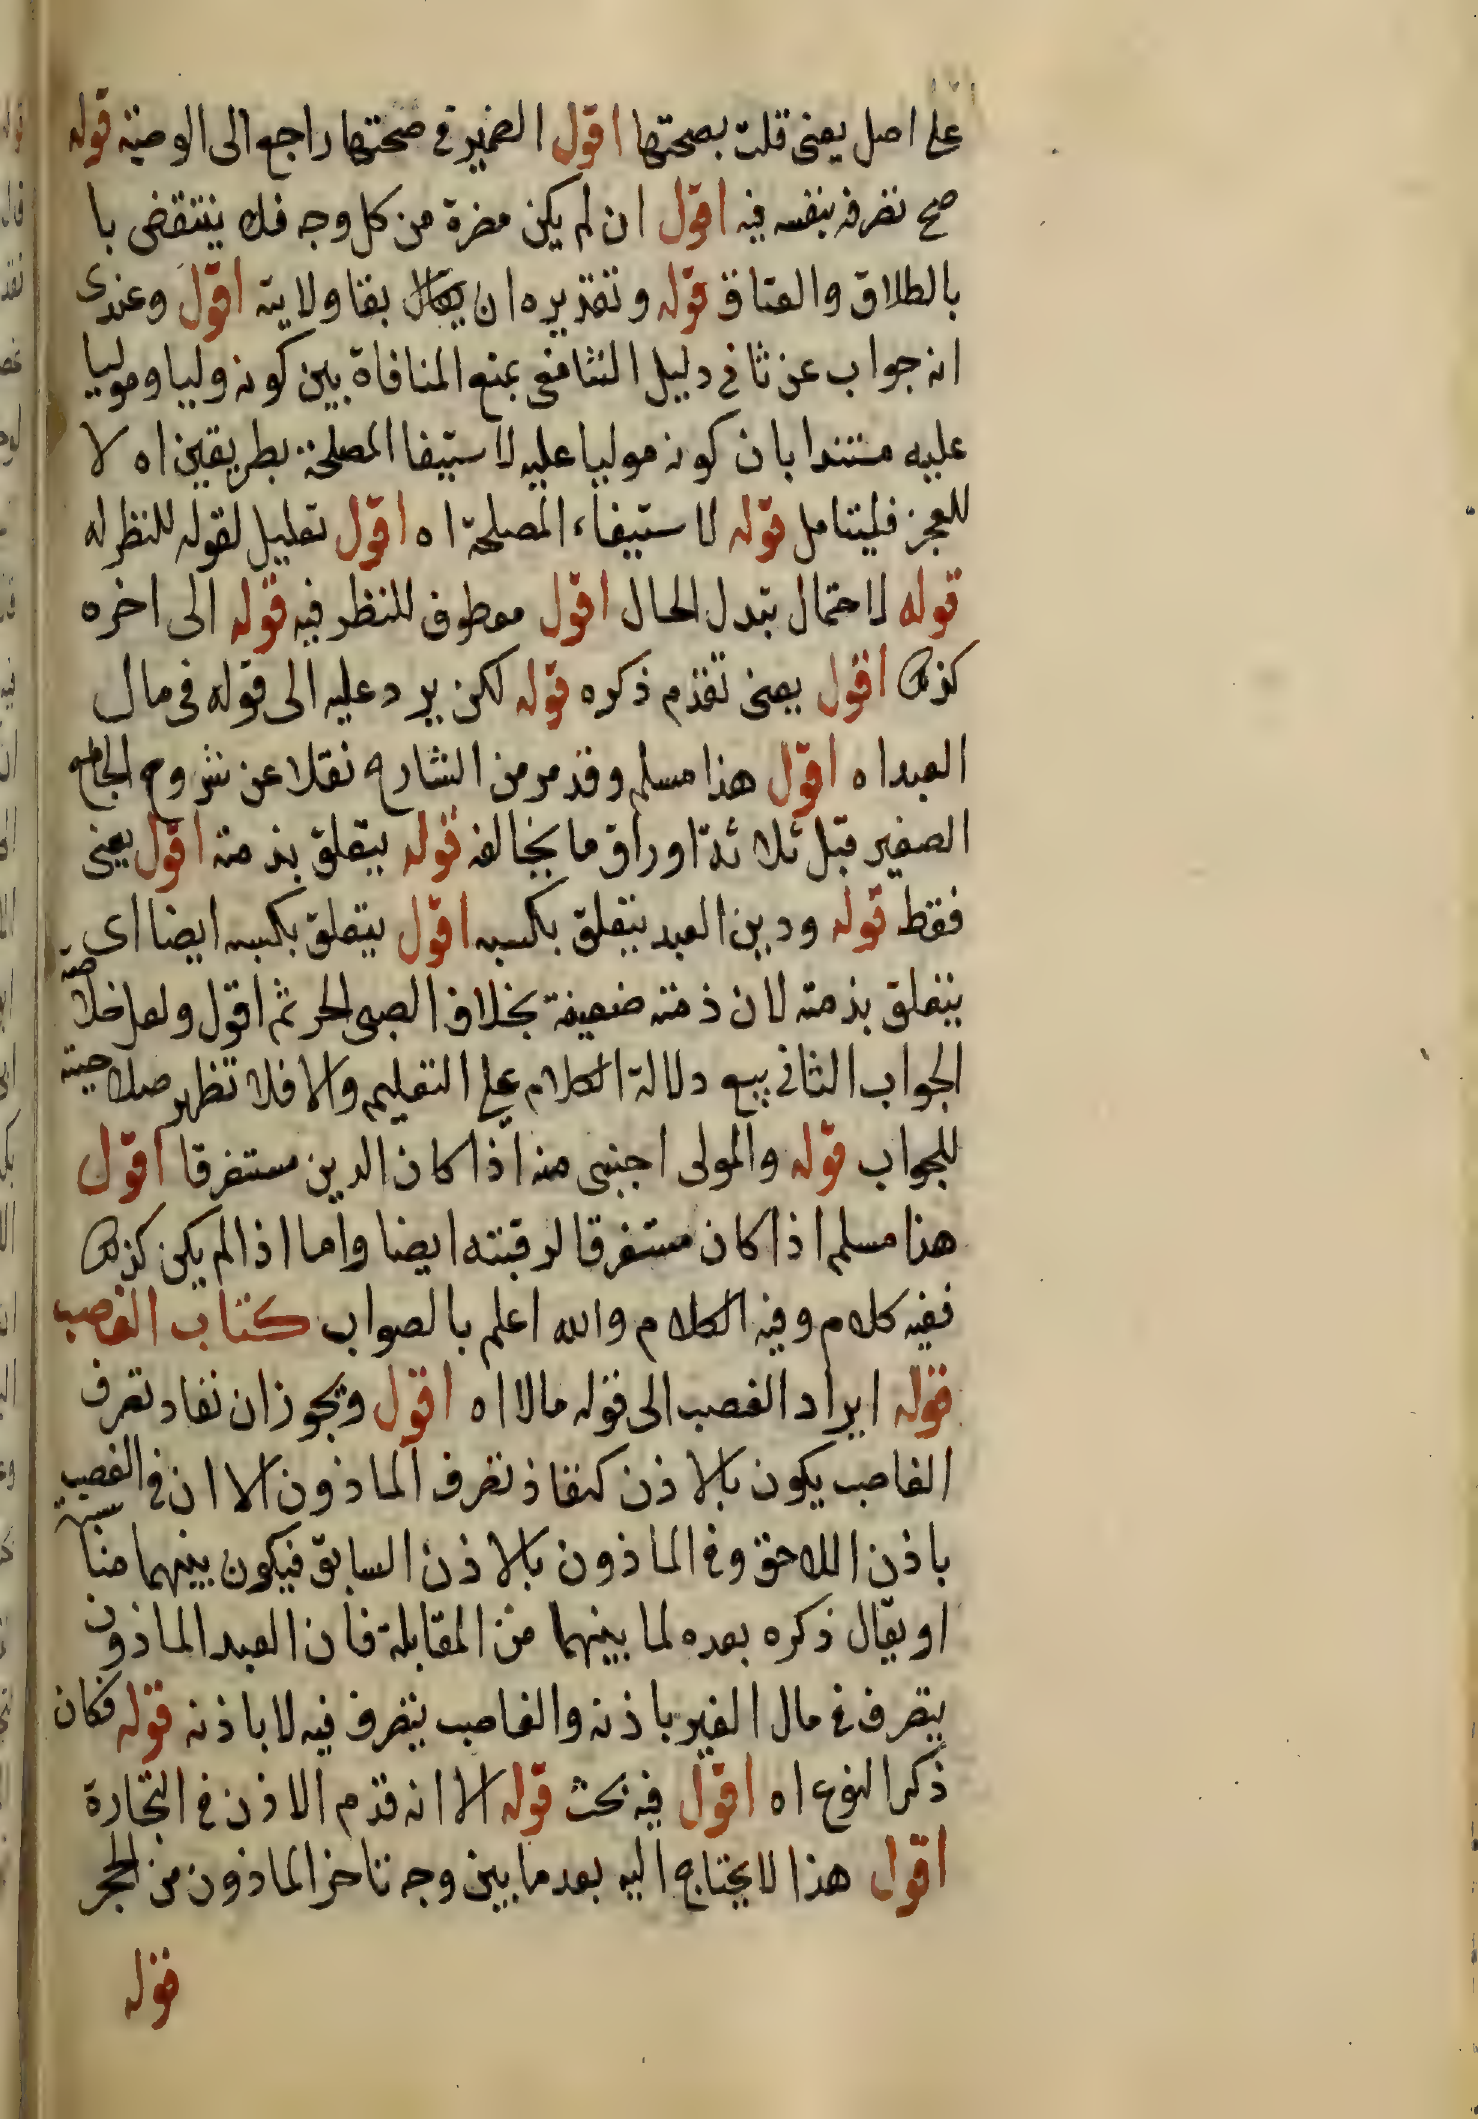 على اصل يعنى قلت بصحتها اقول الضمير فى صحتها راجع الى الوصية قوله
صح تصرفه بنفسه فيه اقول ان لم يكن مضرة من كل وجه فلا ينتقض با
بالطلاق والعتاق قوله وتقديره ان يقال بقا ولايته اقول وعندى
انه جواب عن ثانى دليل الشافعى بمنع المنافاة بين كونه وليا وموليا
عليه مستندا بان كونه موليا عليه لاستيفا المصلحة بطريقين اه لا
للعجز فليتامل قوله لاستيفاء المصلحة اه اقول تعليل لقوله للنظر له
قوله لاحتمال تبدل الحال اقول معطوف للنظر فيه قوله الى اخره
كذلك اقول يعنى تقدم ذكره قوله لكن يرد عليه الى قوله فى مال
العبد اه اقول هذا مسلم وقد مر من الشارح نقلا عن شروح الجامع
الصغير قبل ثلاثة اوراق ما يخالفه قوله يتعلق بذمته اقول يعنى
فقط قوله ودين العبد يتعلق بكسبه اقول يتعلق بكسبه ايضا اى
يتعلق بذمته لان ذمته ضعيفة بخلاف الصبى الحر ثم اقول ولعل خلاصة
الجواب الثانى بيع دلالة الكلام على التعليم والا فلا تظهر صلاحيته
للجواب قوله والمولى اجنبى منه اذا كان الدين مستغرقا اقول
هذا مسلم اذا كان مستغرقا لرقبته ايضا واما اذا لم يكن كذلك
ففيه كلام وفيه الكلام والله اعلم بالصواب كتاب الغصب
قوله ايراد الغصب الى قوله مالا اه اقول ويجوز ان نفاد تصرف
الغاصب يكون بالاذن كنفاذ تصرف الماذون الا ان فى الغصب
باذن اللاحق وفى الماذون بالاذن السابق فيكون بينهما مناسبة
او يقال ذكره بعده لما بينهما من المقابلة فان العبد الماذون
يتصرف فى مال الغير باذنه والغاصب يتصرف فيه لا باذنه قوله فكان
ذكر النوع اه اقول فيه بحث قوله الا انه قدم الاذن فى التجارة
اقول هذا لا يحتاج اليه بعد ما بين وجه تاخر الماذون من الحجر
قوله